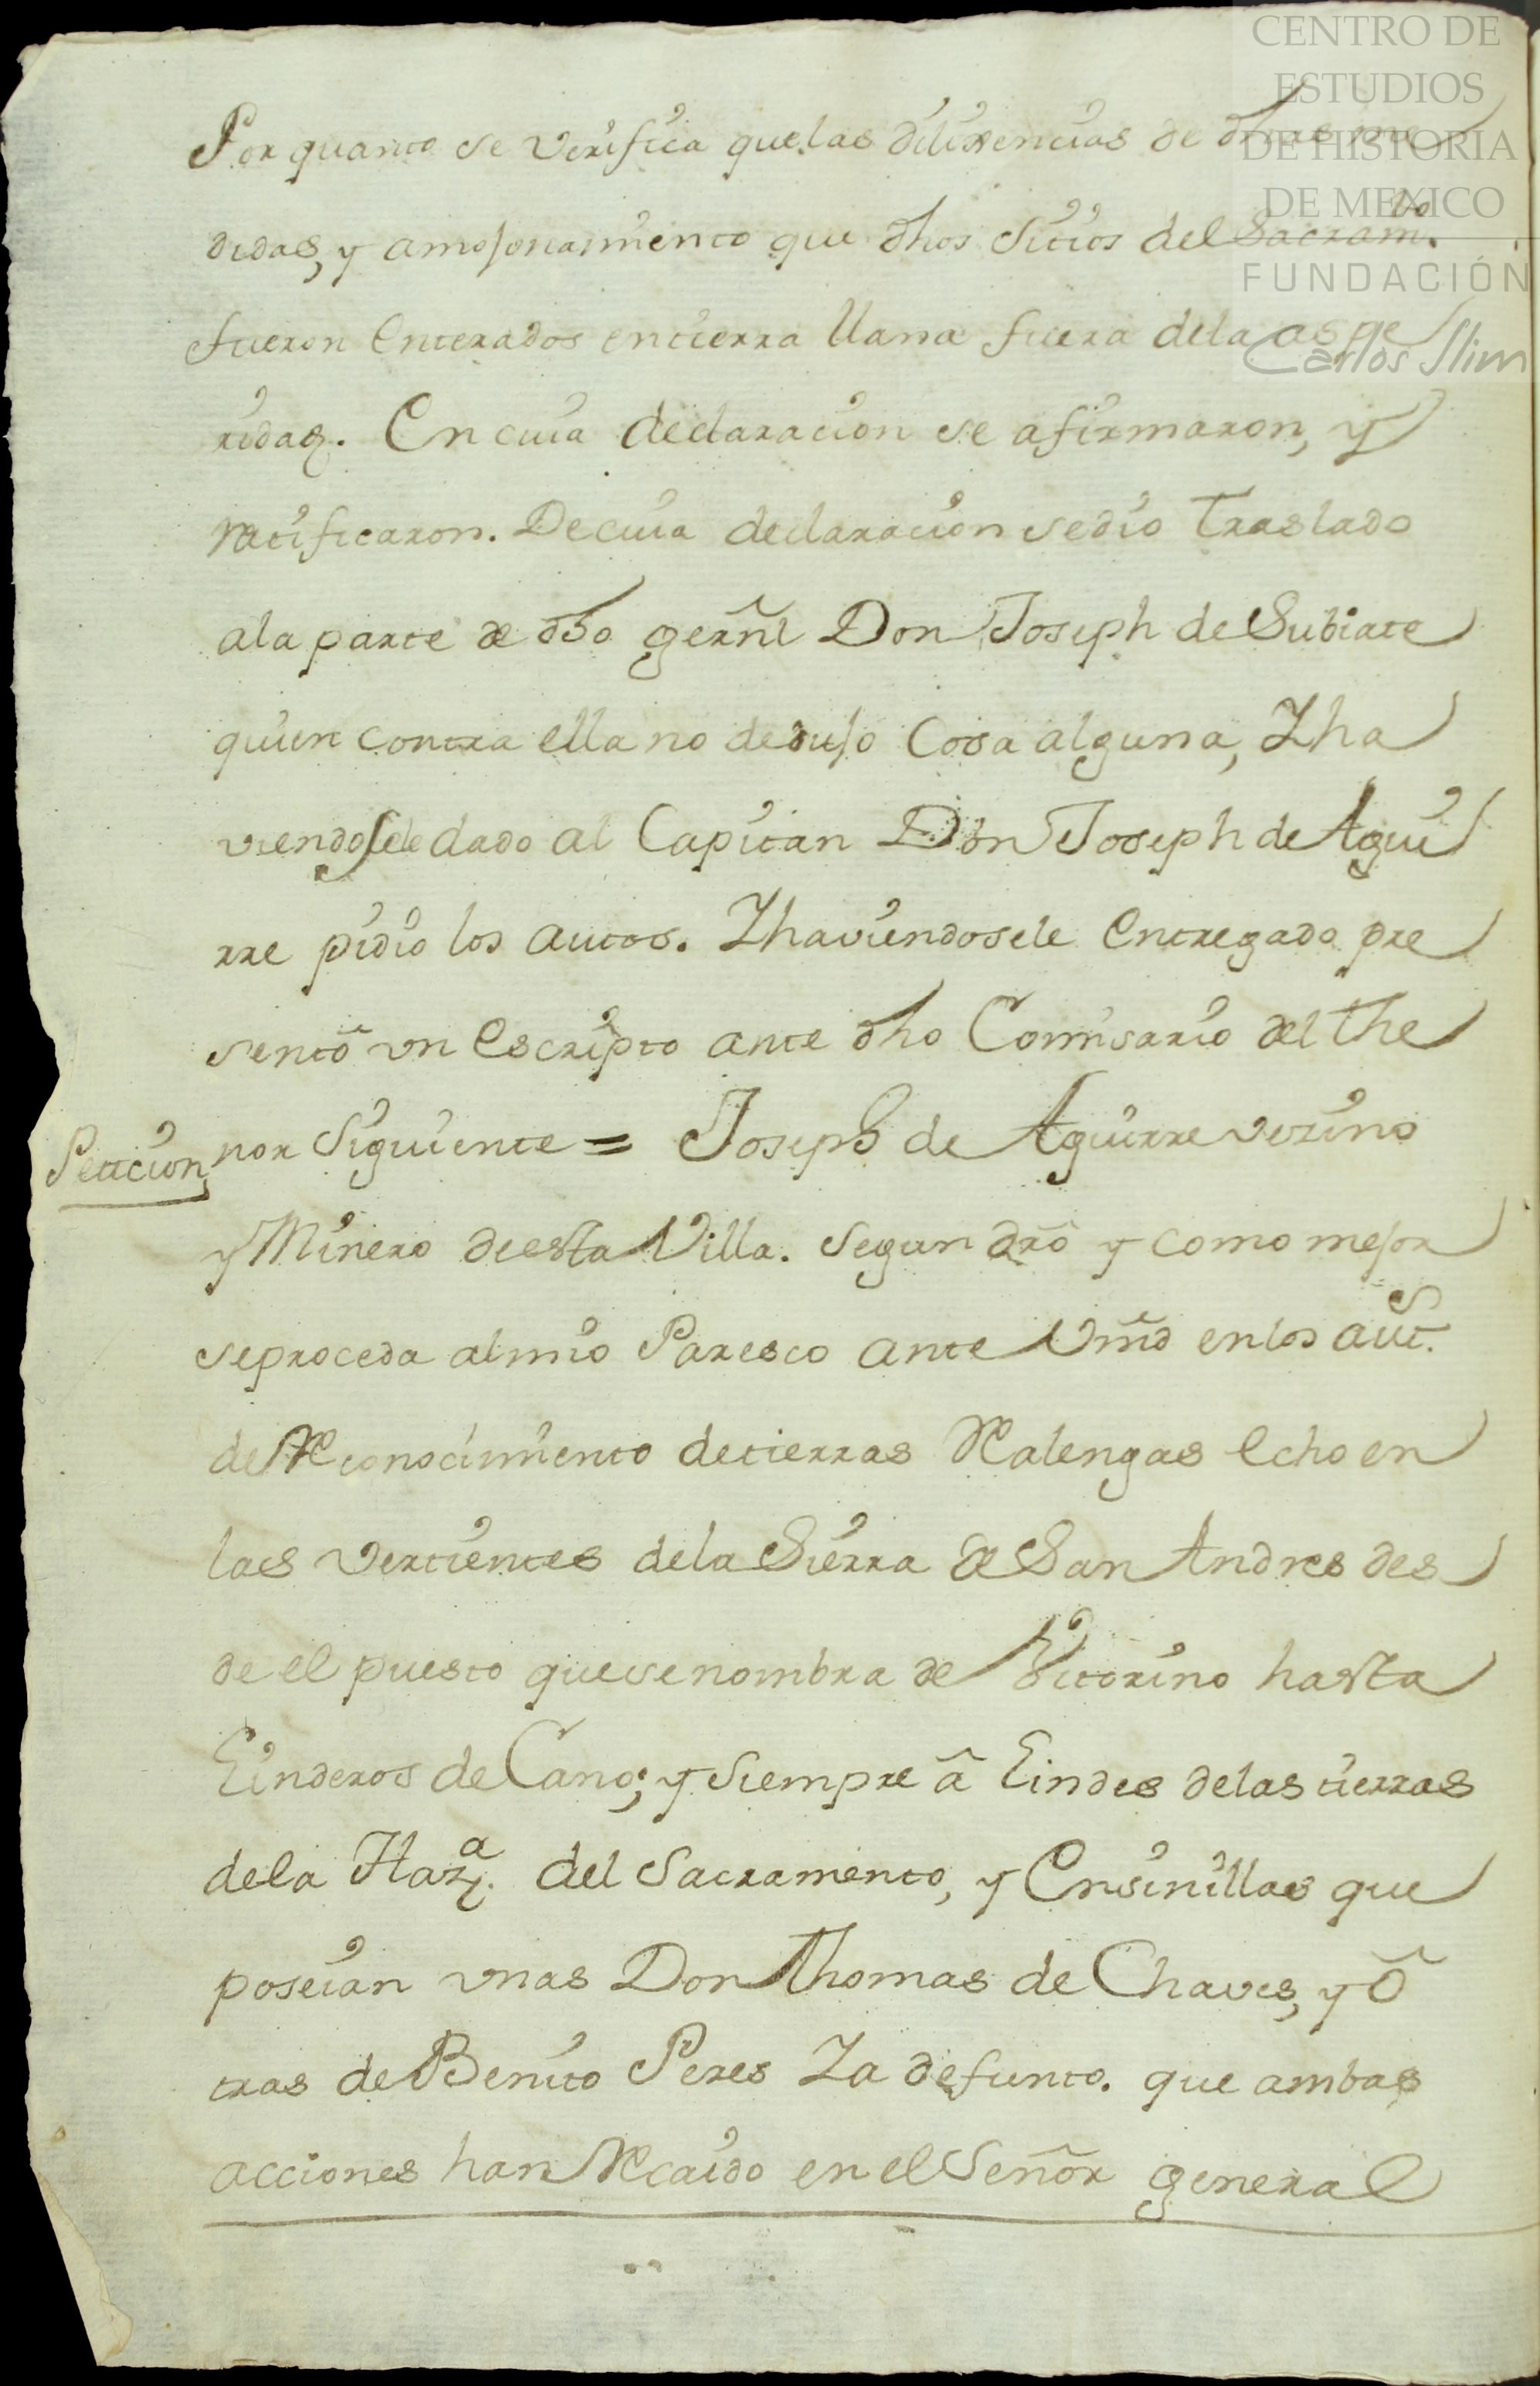 CENTRO DE
ESTUDIOS
DE HISTORIA
DE MEXICO
FUNDACIÓN
Carlos Slim
Por quanto se verifica que las dilixencias de dhas me
didas, y amojonamiento que dhos Sitios del Sacram.to
fueron Enterados en tierra llana fuera dela aspe
ridad. En cuia declaracion se afirmaron, y
ratificaron. De cuia declaracion se dio Traslado
ala parte de dho gerñl Don Joseph de Subiate
quien contra ella no dedujo Cosa alguna, Yha
viendosele dado al Capitan Don Joseph de Agui
rre pidio los autos. Yhaviendosele Entregado pre
sentò vn Escripto ante dho Comisario del the
Peticion
nor Siguiente = Joseph de Aguirre vezino
y Minero deesta Villa. Segun dr̃o y como mejor
seproceda almio Paresco ante Vm̃d enlos aut.s
de Reconocimiento detierras Realengas Echo en
las vertientes dela Sierra de San Andres des
de el puesto quesenombra de Vitorino hasta
Linderos de Cano; y Siempre â Lindes delas tierras
dela Haz.a del Sacramento, y Ensinillas que
poseian vnas Don Thomas de Chaves, y ô
tras de Benito Peres Ya defunto. que ambas
acciones han Recaido en el Señor general